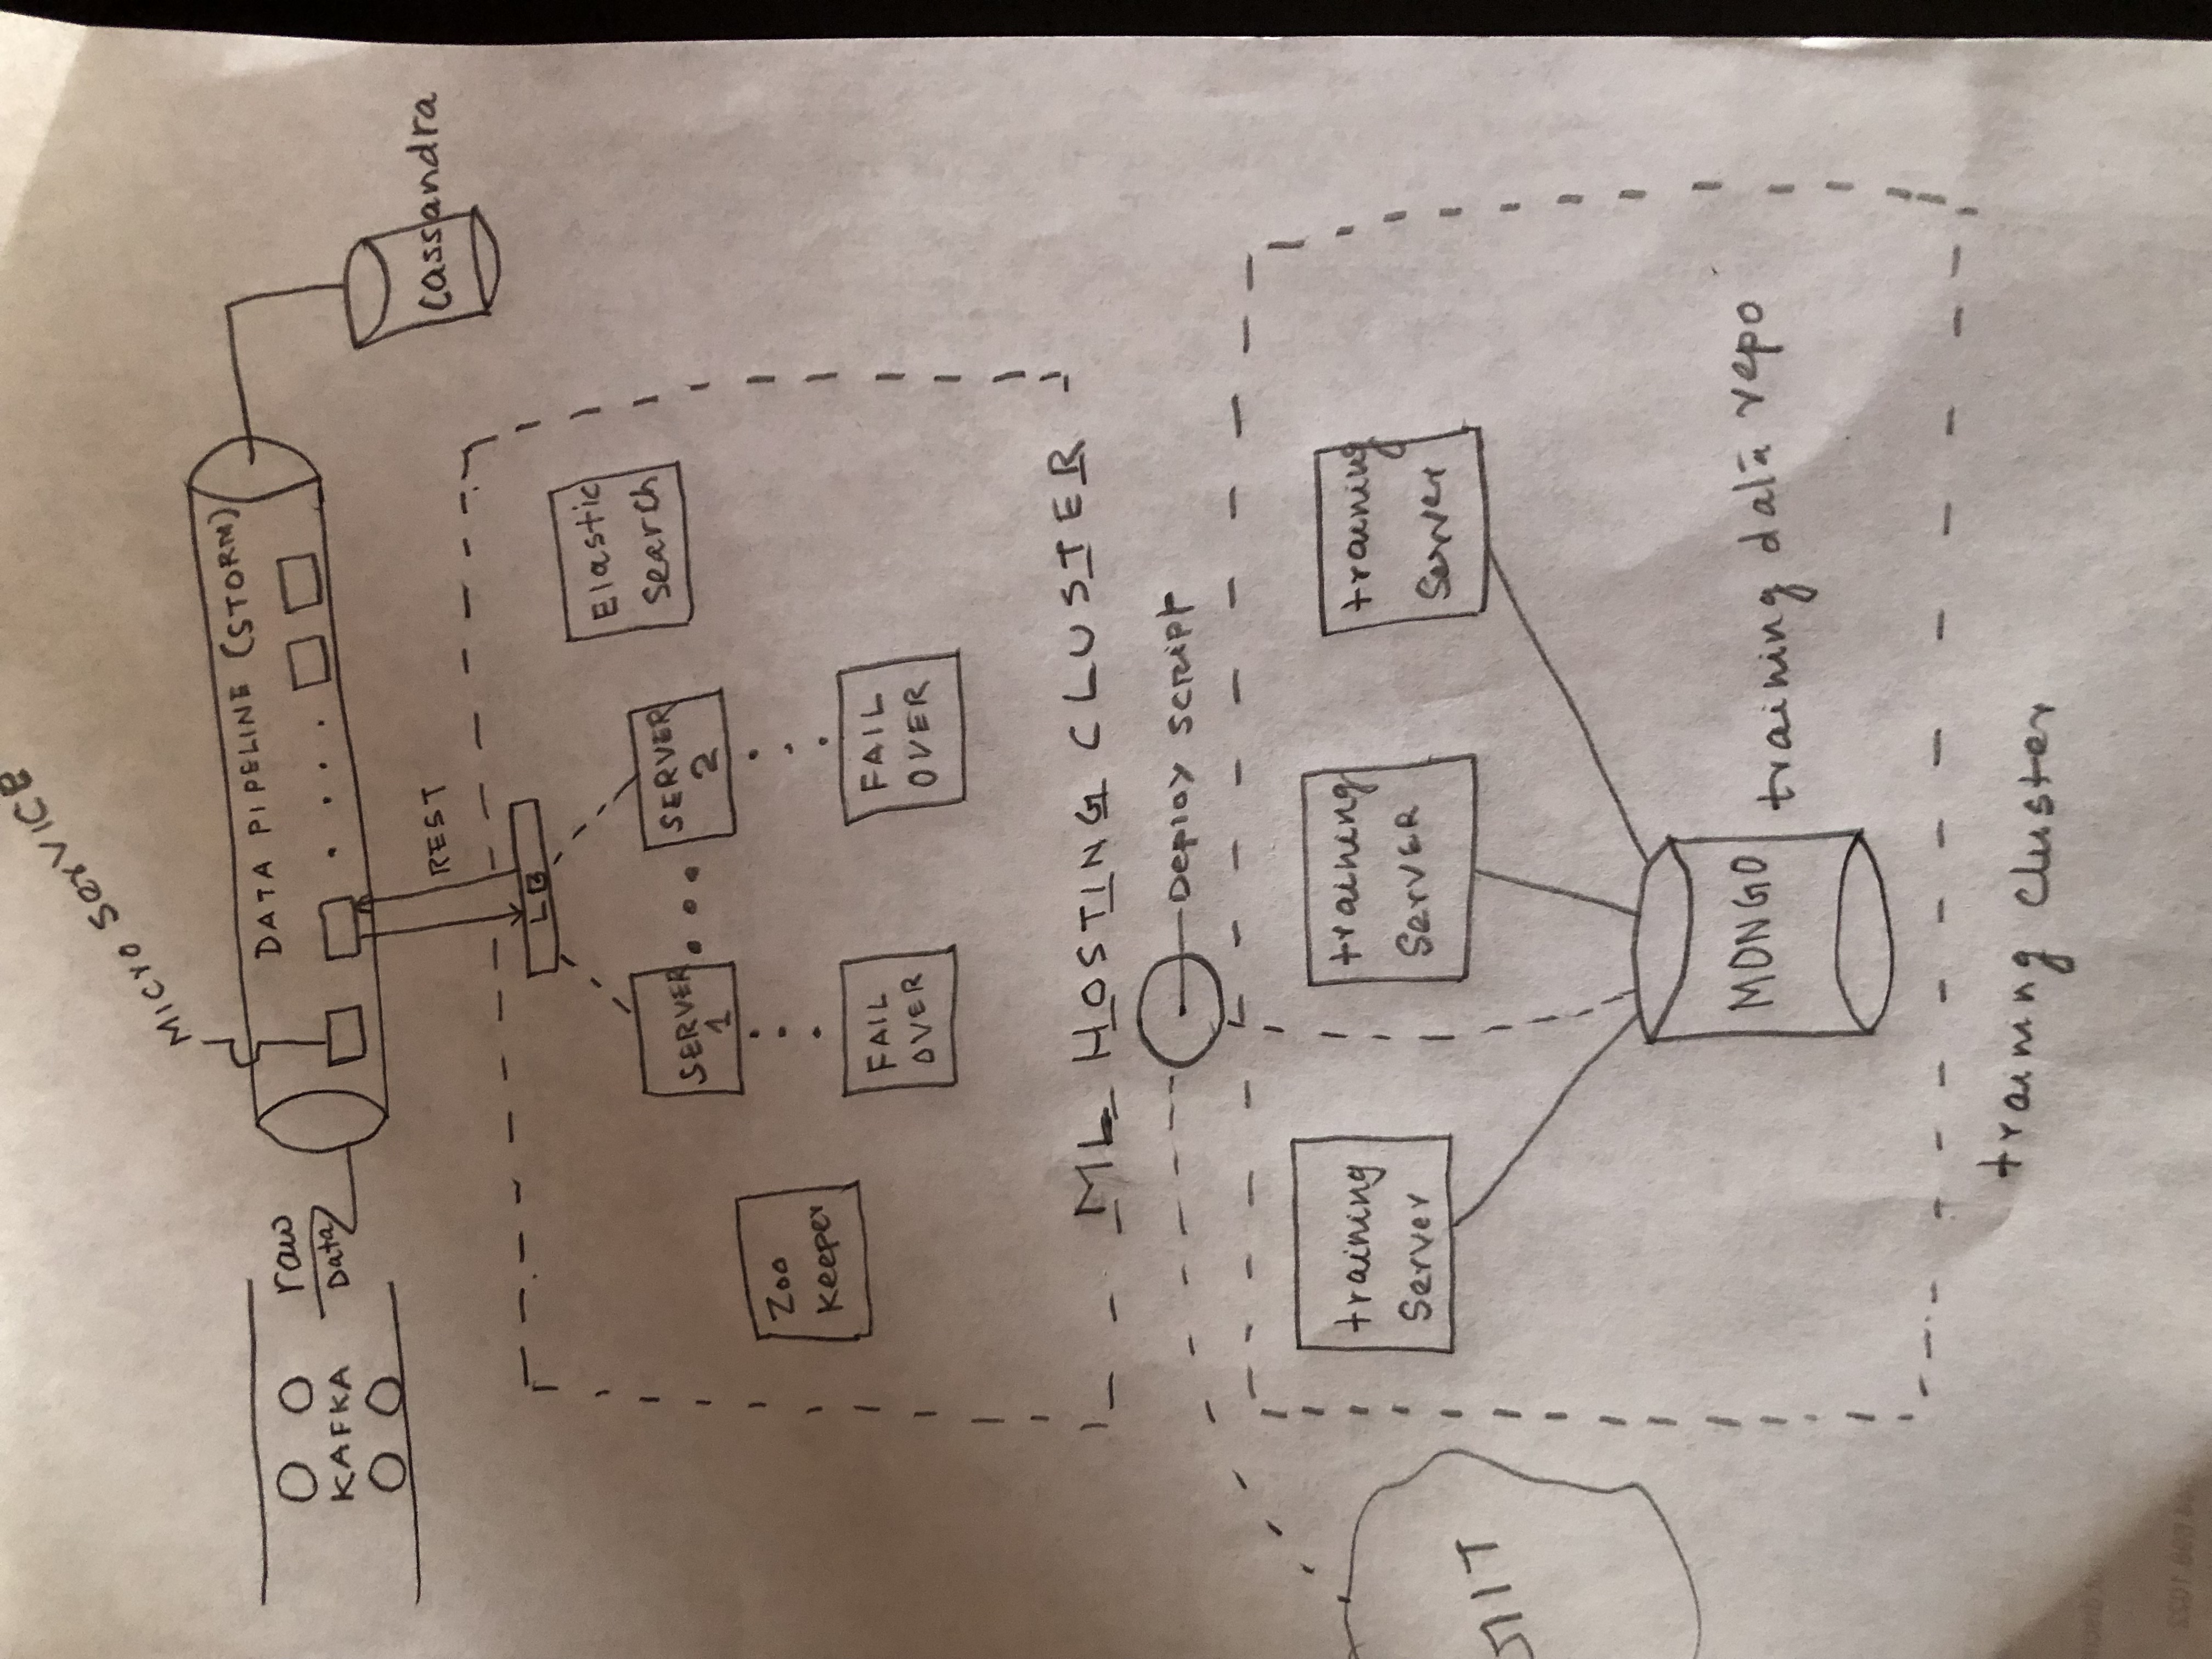 Micro Service
DATA PIPELINE (STORM)
raw
Data
KAFKA
REST
Cassandra
LB
Elastic
Search
SERVER
1
SERVER
2
Zoo
Keeper
FAIL
OVER
FAIL
OVER
ML HOSTING CLUSTER
Deploy Script
training
Server
training
Server
training
Server
MONGO
training data repo
training cluster